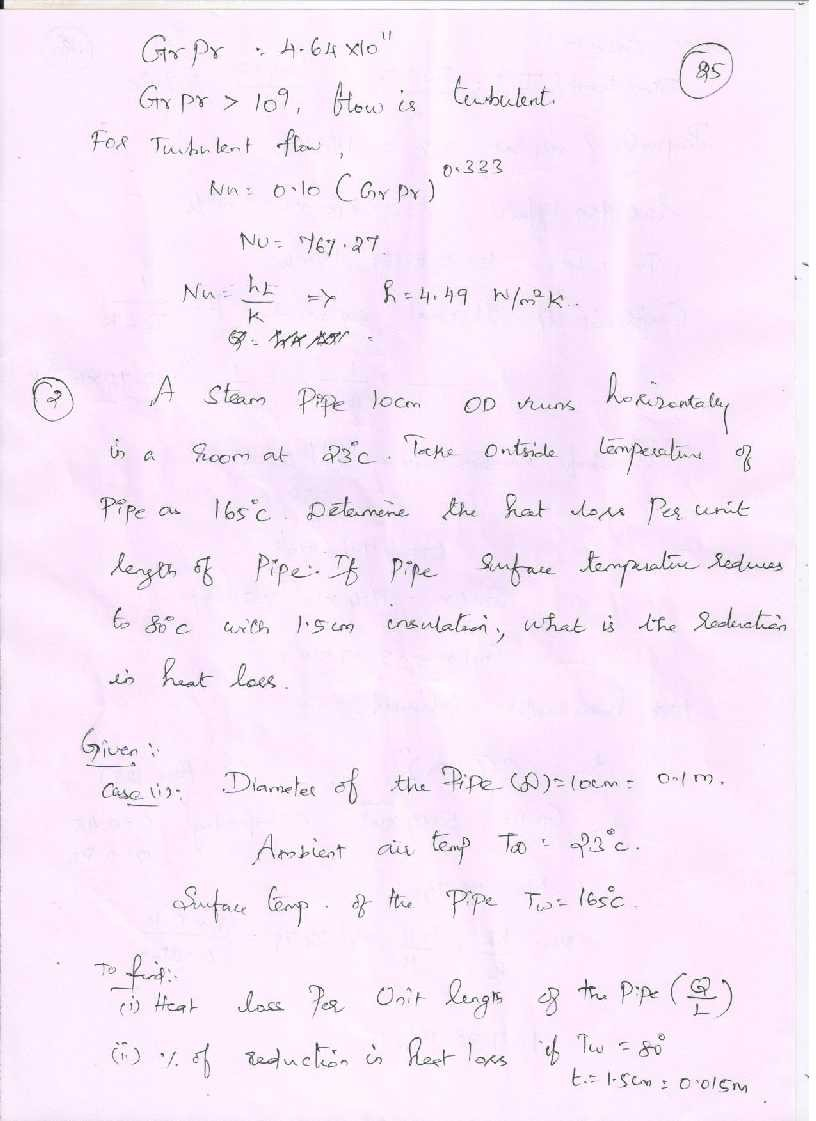 85
Gr Pr = 4.64 x 10^11
Gr Pr > 10^9, flow is turbulent.
For Turbulent flow,
Nu = 0.10 (Gr Pr)^0.333
Nu = 767.27
Nu = hL/K => h = 4.49 W/m²K..
Q =
2 A Steam Pipe 10cm OD runs horizontally
in a room at 23°c. Take Outside temperature of
Pipe as 165°c. Determine the heat loss Per unit
length of Pipe:. If pipe surface temperature reduces
to 80°c with 1.5cm insulation, what is the reduction
in heat loss.
Given :-
Case (i):- Diameter of the Pipe (D) = 10cm = 0.1m.
Ambient air temp T∞ = 23°c.
Surface temp. of the Pipe Tw = 165°c.
To find:-
(i) Heat loss Per Unit length of the Pipe (Q/L)
(ii) % of reduction in heat loss if Tw = 80°
t = 1.5cm = 0.015m